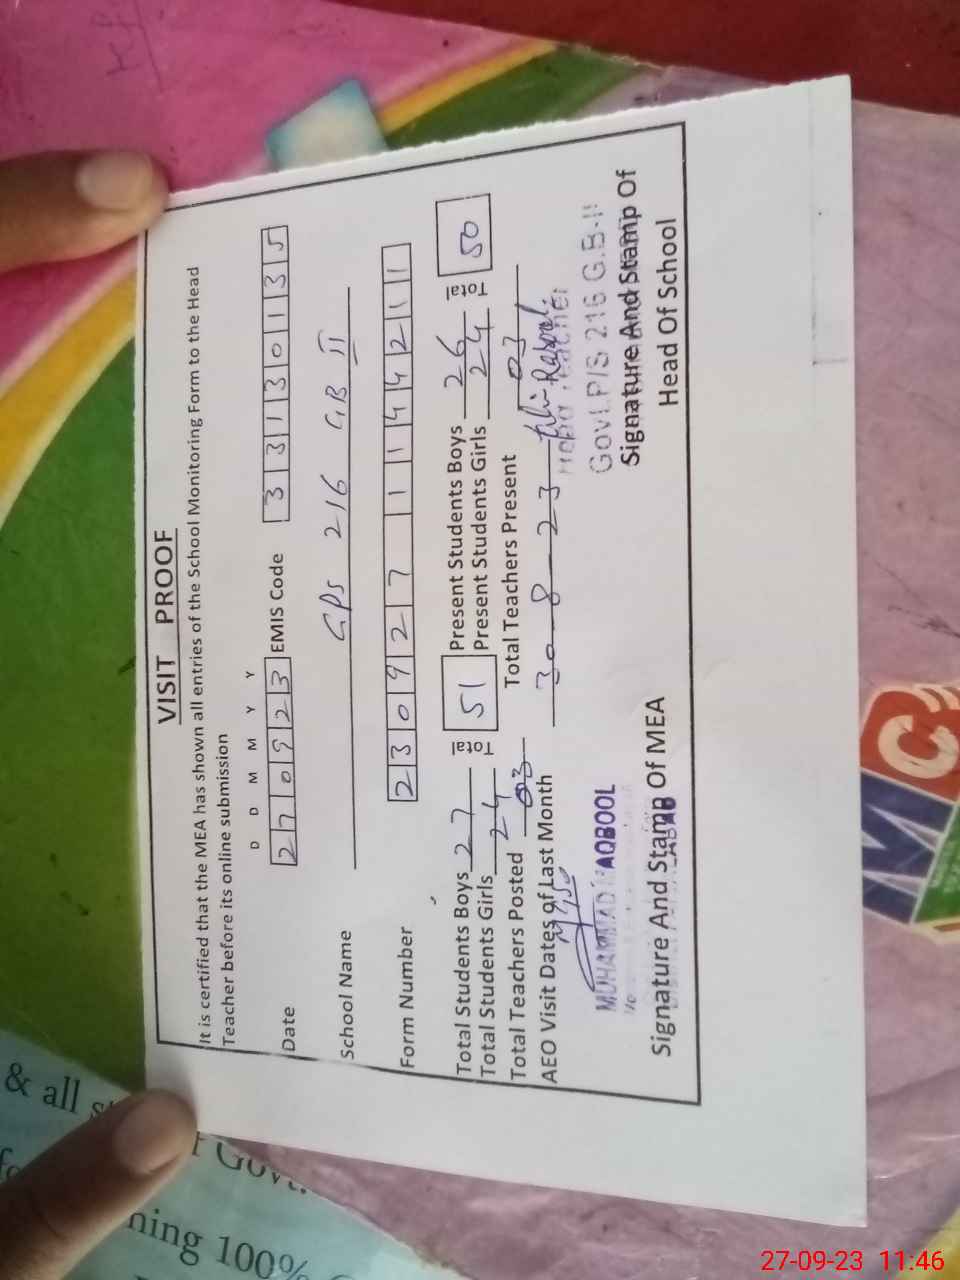 VISIT PROOF
It is certified that the MEA has shown all entries of the School Monitoring Form to the Head
Teacher before its online submission
D D M M Y Y
Date 270923 EMIS Code 33130135
School Name GPS 216 GB II
Form Number 230927 1144211
Total Students Boys 27 Total 51 Present Students Boys 26 Total 50
Total Students Girls 24 Present Students Girls 24
Total Teachers Posted 03 Total Teachers Present 03
AEO Visit Dates of Last Month 30-8-23
MUHAMMAD MAQBOOL
Head Teacher
Govt. P/S 216 G.B-II
Signature And Stamp Of MEA
Signature And Stamp Of
Head Of School
& all
Govt.
ning 100%
MC
27-09-23 11:46